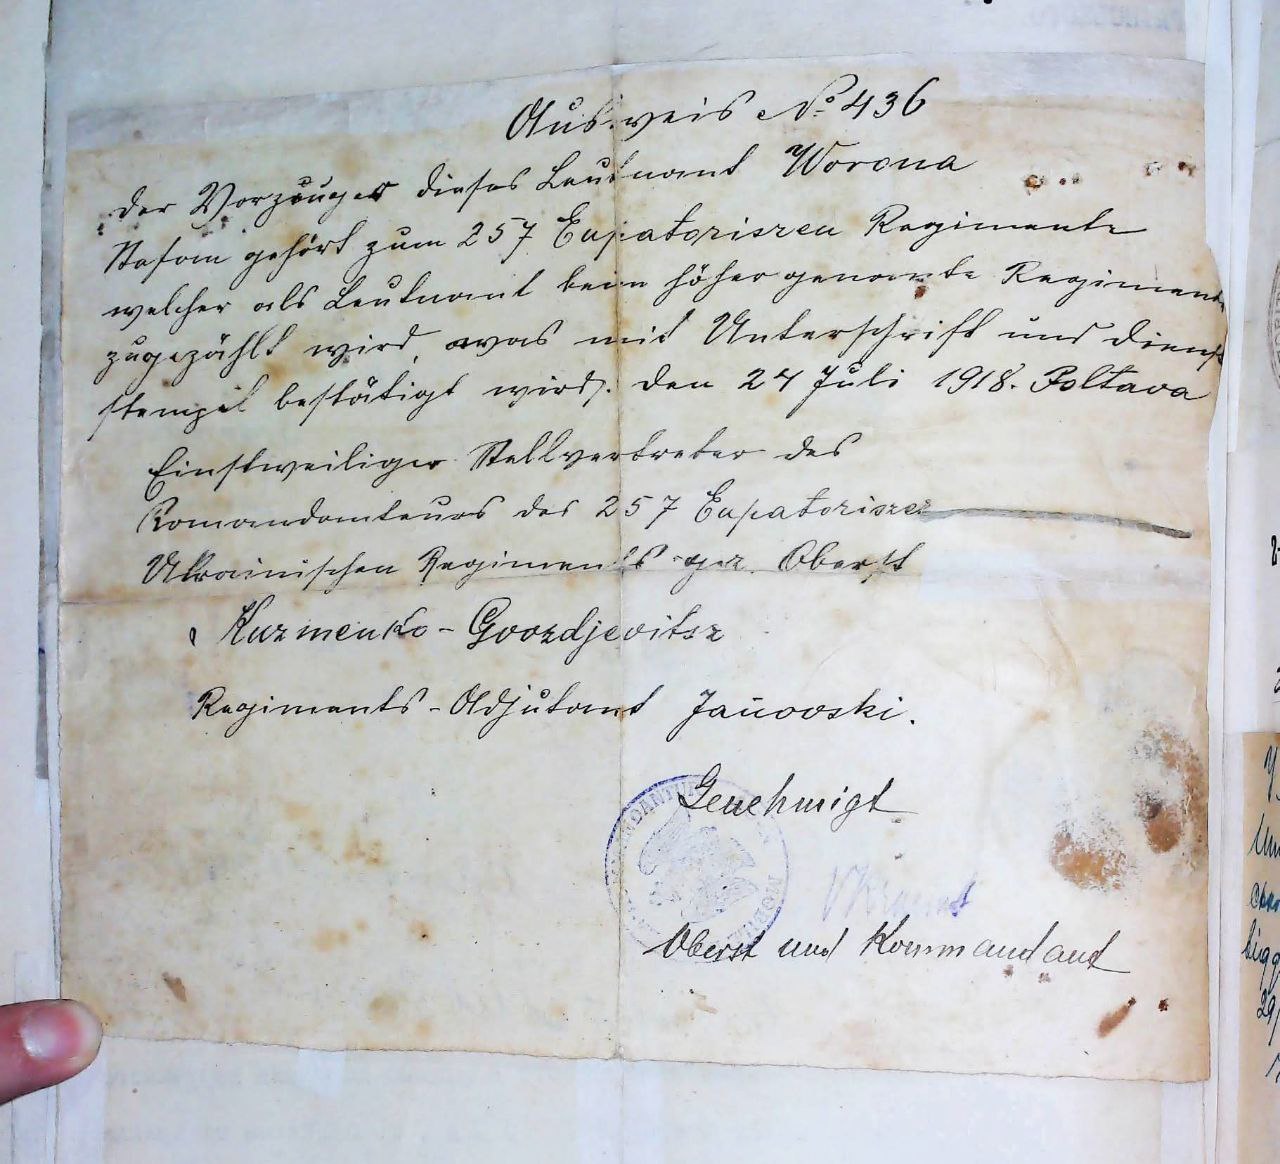 Ausweis № 436
der Vorzeuger dieses Leutnant Worona
Stefan gehört zum 257 Eupatoriszen Regimente
welcher als Leutnant beim höher genannte Regimente
zugezählt wird, was mit Unterschrift und Dienst
stempel bestätigt wird. den 24 Juli 1918. Poltava
Einstweiliger Stellvertreter des
Komandanteurs des 257 Eupatoriszer
Ukrainischen Regiments gez. Oberst
Kuzmenko - Gvozdjevitsz
Regiments - Adjutant Janovski.
Genehmigt
Oberst und Kommandant